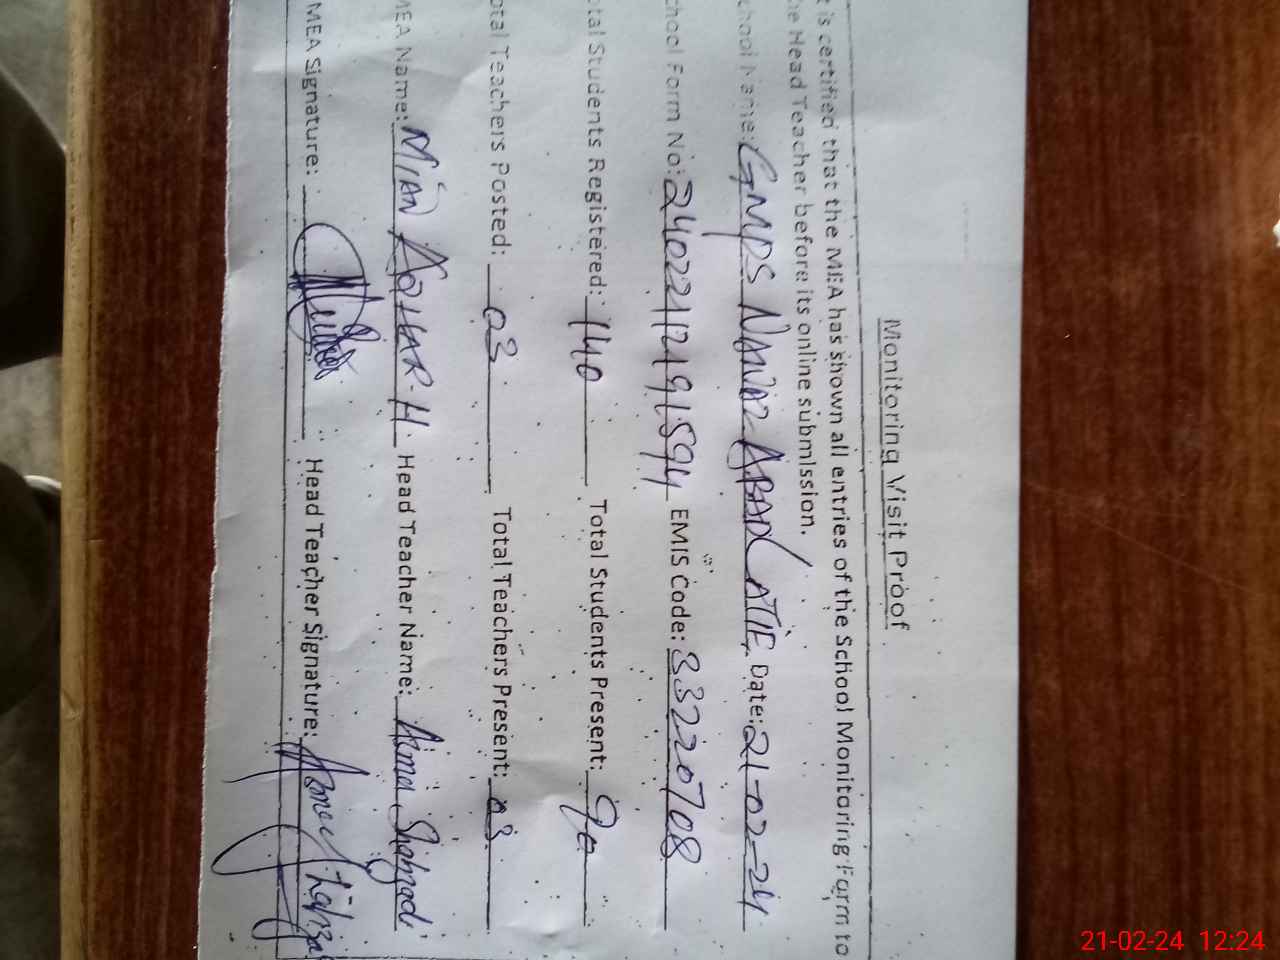 Monitoring Visit Proof
t is certified that the MEA has shown all entries of the School Monitoring Form to
he Head Teacher before its online submission.
chool Name: GMPS NAWAZ ABAD Date: 21-02-24
chool Form No: EMIS Code: 33220708
otal Students Registered: 140 Total Students Present: 90
otal Teachers Posted: 03 Total Teachers Present: 03
MEA Name: MIAN AZHAR H. Head Teacher Name: Asma Shahzadi
MEA Signature: Head Teacher Signature:
21-02-24 12:24